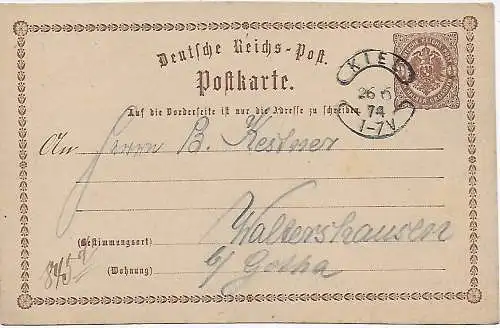 Deutsche Reichs-Post.
Postkarte.
KIEL
26 6
74
1-7V
Auf die Vorderseite ist nur die Adresse zu schreiben.
An Herrn B. Kestner
(Bestimmungsort) Waltershausen
(Wohnung) b/ Gotha